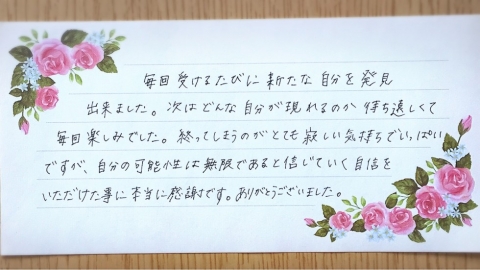 毎回受けるたびに新たな自分を発見
出来ました。次はどんな自分が現れるのか待ち遠しくて
毎回楽しみでした。終ってしまうのがとても寂しい気持ちでいっぱい
ですが、自分の可能性は無限であると信じていく自信を
いただけた事に本当に感謝です。ありがとうございました。